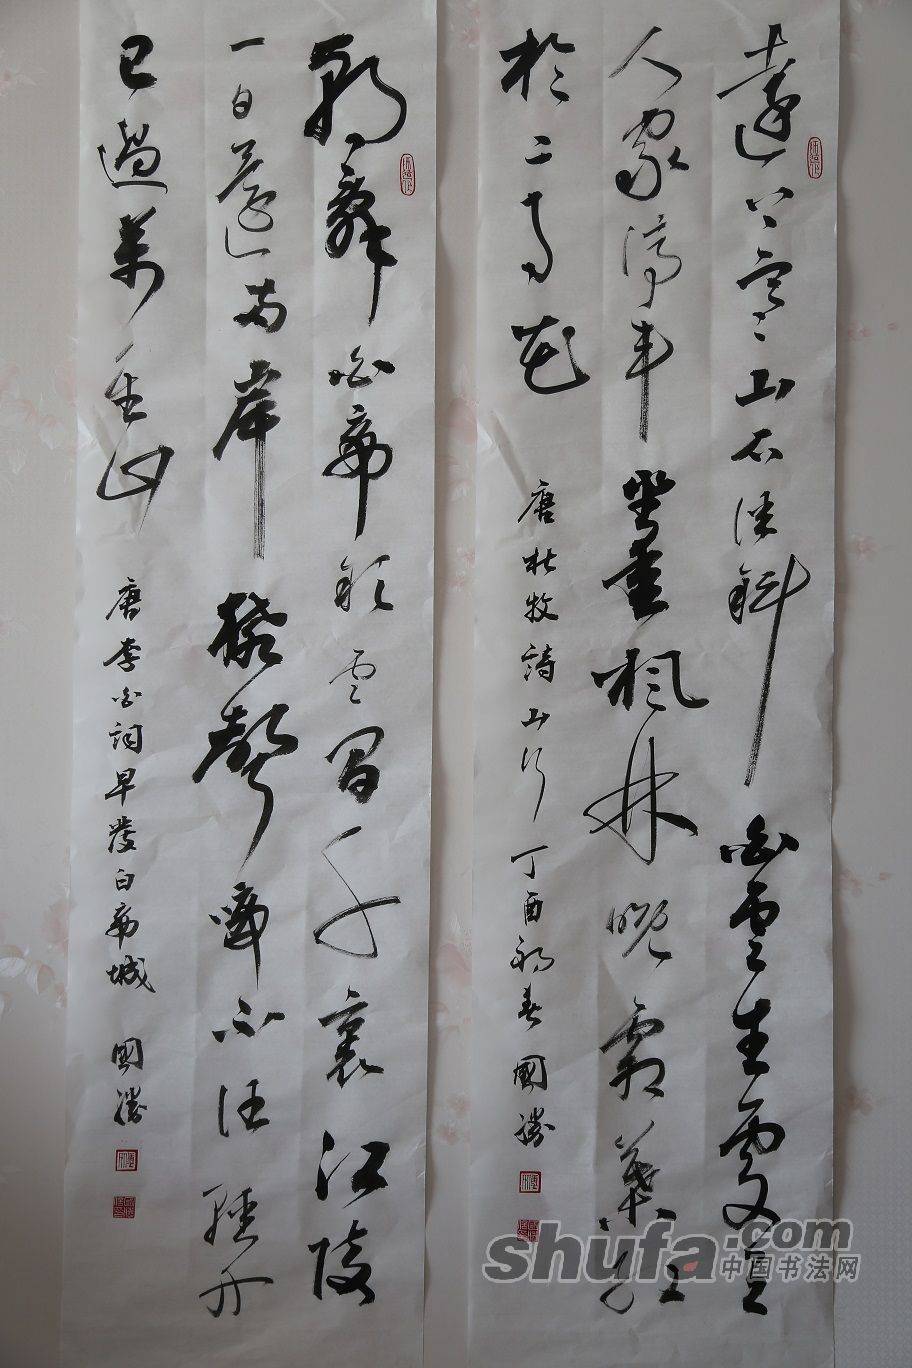 遠上寒山石徑斜白雲生處有
人家停車坐愛楓林晚霜葉红
於二月花
唐杜牧詩山行 丁酉初春 國勝
朝辭白帝彩雲間千裏江陵
一日還两岸猿聲啼不住輕舟
已過萬重山
唐李白詞早發白帝城 國勝
shufa.com
中国书法网